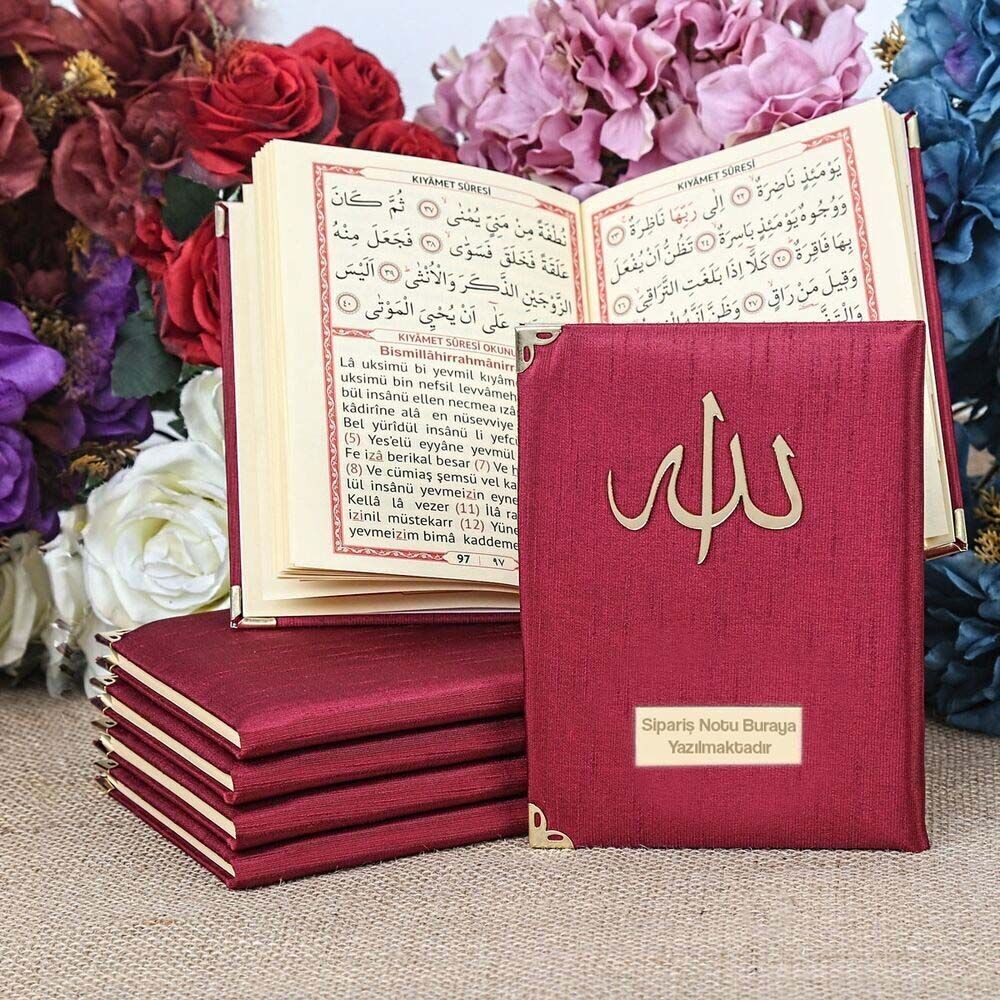 KIYÂMET SÛRESİ
نُطْفَةً مِنْ مَنِيٍّ يُمْنٰىۙ ﴿٣٧﴾ ثُمَّ كَانَ
عَلَقَةً فَخَلَقَ فَسَوّٰىۙ ﴿٣٨﴾ فَجَعَلَ مِنْهُ
الزَّوْجَيْنِ الذَّكَرَ وَالْاُنْثٰىۜ ﴿٣٩﴾ اَلَيْسَ
عَلٰٓى اَنْ يُحْيِيَ الْمَوْتٰى ﴿٤٠﴾
KIYÂMET SÛRESİ OKUNU
Bismillâhirrahmânirr
Lâ uksimü bi yevmil kıyâme
uksimü bin nefsil levvâmeh
bül insânü ellen necmea ızâ
kâdirîne alâ en nüsevviye
Bel yürîdül insânü li yefcü
(5) Yes'elü eyyâne yevmül
Fe izâ berikal besar (7) Ve h
(8) Ve cümiaş şemsü vel ka
lül insânü yevmeizin eyne
Kellâ lâ vezer (11) İlâ ra
izinil müstekarr (12) Yüne
yevmeizim bimâ kaddeme
97 ٩٧
KIYÂMET SÛRESİ
يَوْمَئِذٍ نَاضِرَةٌۙ ﴿٢٢﴾ اِلٰى رَبِّهَا نَاظِرَةٌۚ ﴿٢٣﴾
وَوُجُوهٌ يَوْمَئِذٍ بَاسِرَةٌۙ ﴿٢٤﴾ تَظُنُّ اَنْ يُفْعَلَ
بِهَا فَاقِرَةٌۜ ﴿٢٥﴾ كَلَّٓا اِذَا بَلَغَتِ التَّرَاقِيَۙ ﴿٢٦﴾
وَقِيلَ مَنْ رَاقٍۙ ﴿٢٧﴾ وَظَنَّ اَنَّهُ
الله
Sipariş Notu Buraya
Yazılmaktadır